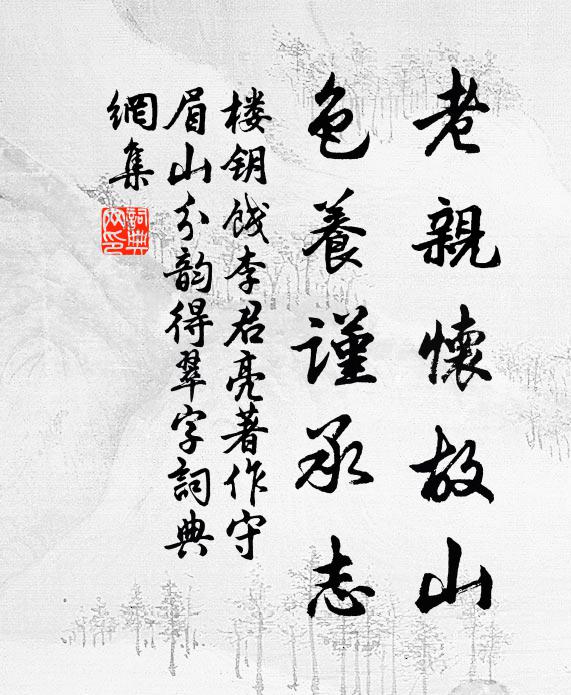 老親懷故山
色養謹承志
楼钥餞李君亮著作守
眉山分韵得翠字詞典
網集
詞典網印